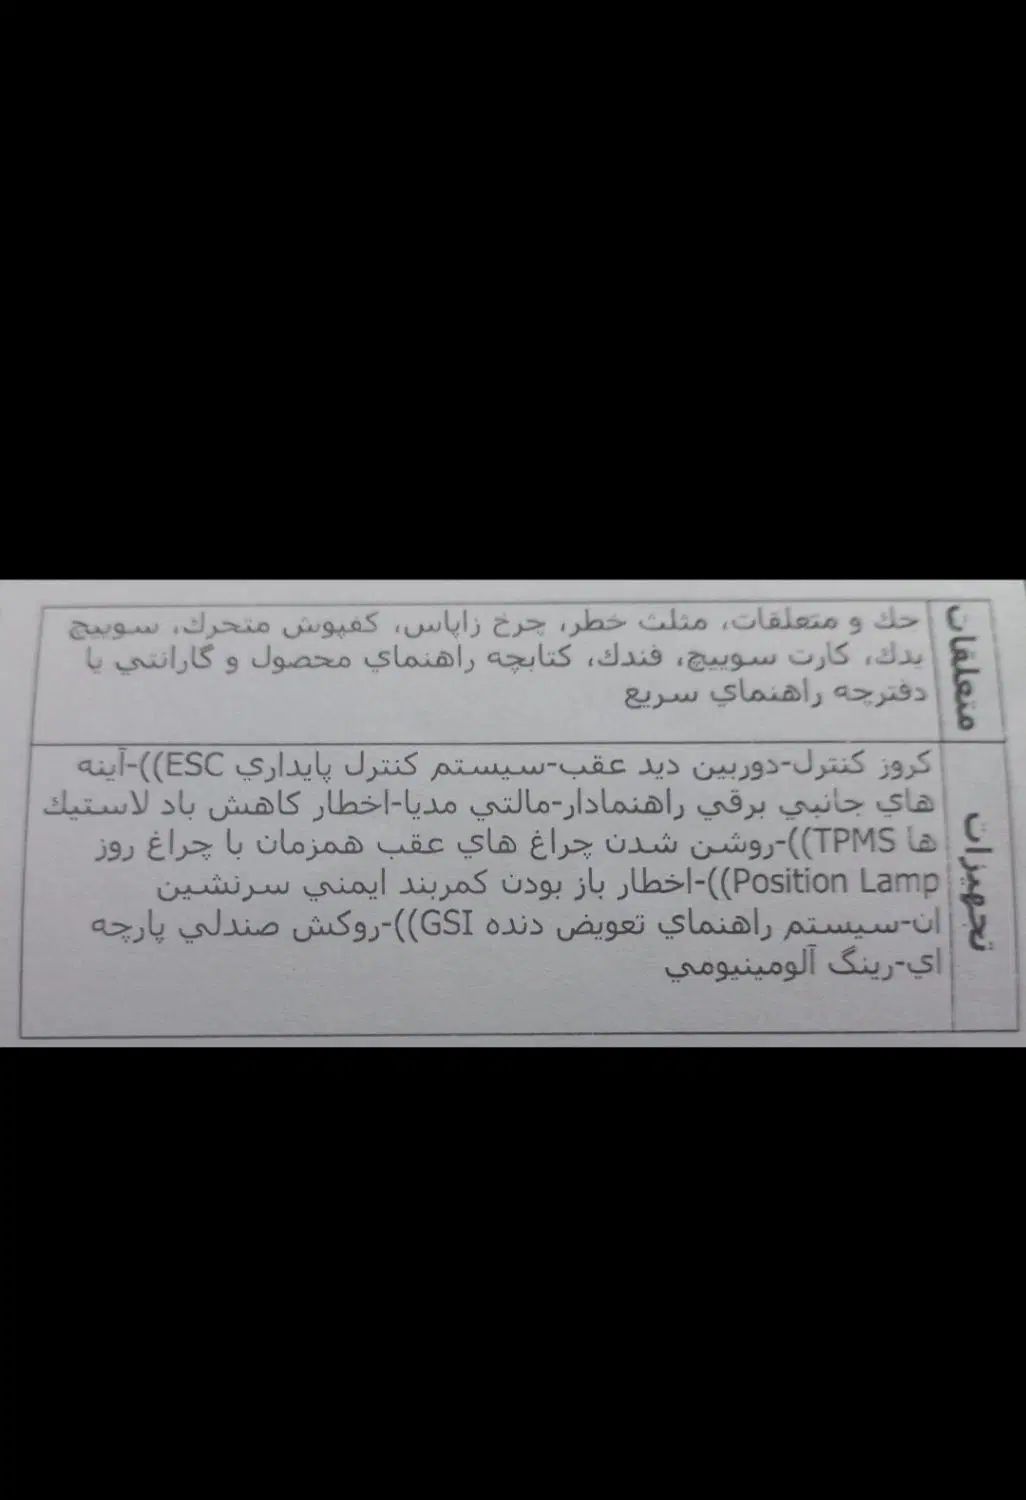 متعلقات
حك و متعلقات، مثلث خطر، چرخ زاپاس، كفپوش متحرك، سوييچ
يدك، كارت سوييچ، فندك، كتابچه راهنماي محصول و گارانتي يا
دفترچه راهنماي سريع
تجهيزات
كروز كنترل-دوربين ديد عقب-سيستم كنترل پايداري ESC))-آينه
هاي جانبي برقي راهنمادار-مالتي مديا-اخطار كاهش باد لاستيك
ها TPMS))-روشن شدن چراغ هاي عقب همزمان با چراغ روز
Position Lamp))-اخطار باز بودن كمربند ايمني سرنشين
ان-سيستم راهنماي تعويض دنده GSI))-روكش صندلي پارچه
اي-رينگ آلومينيومي